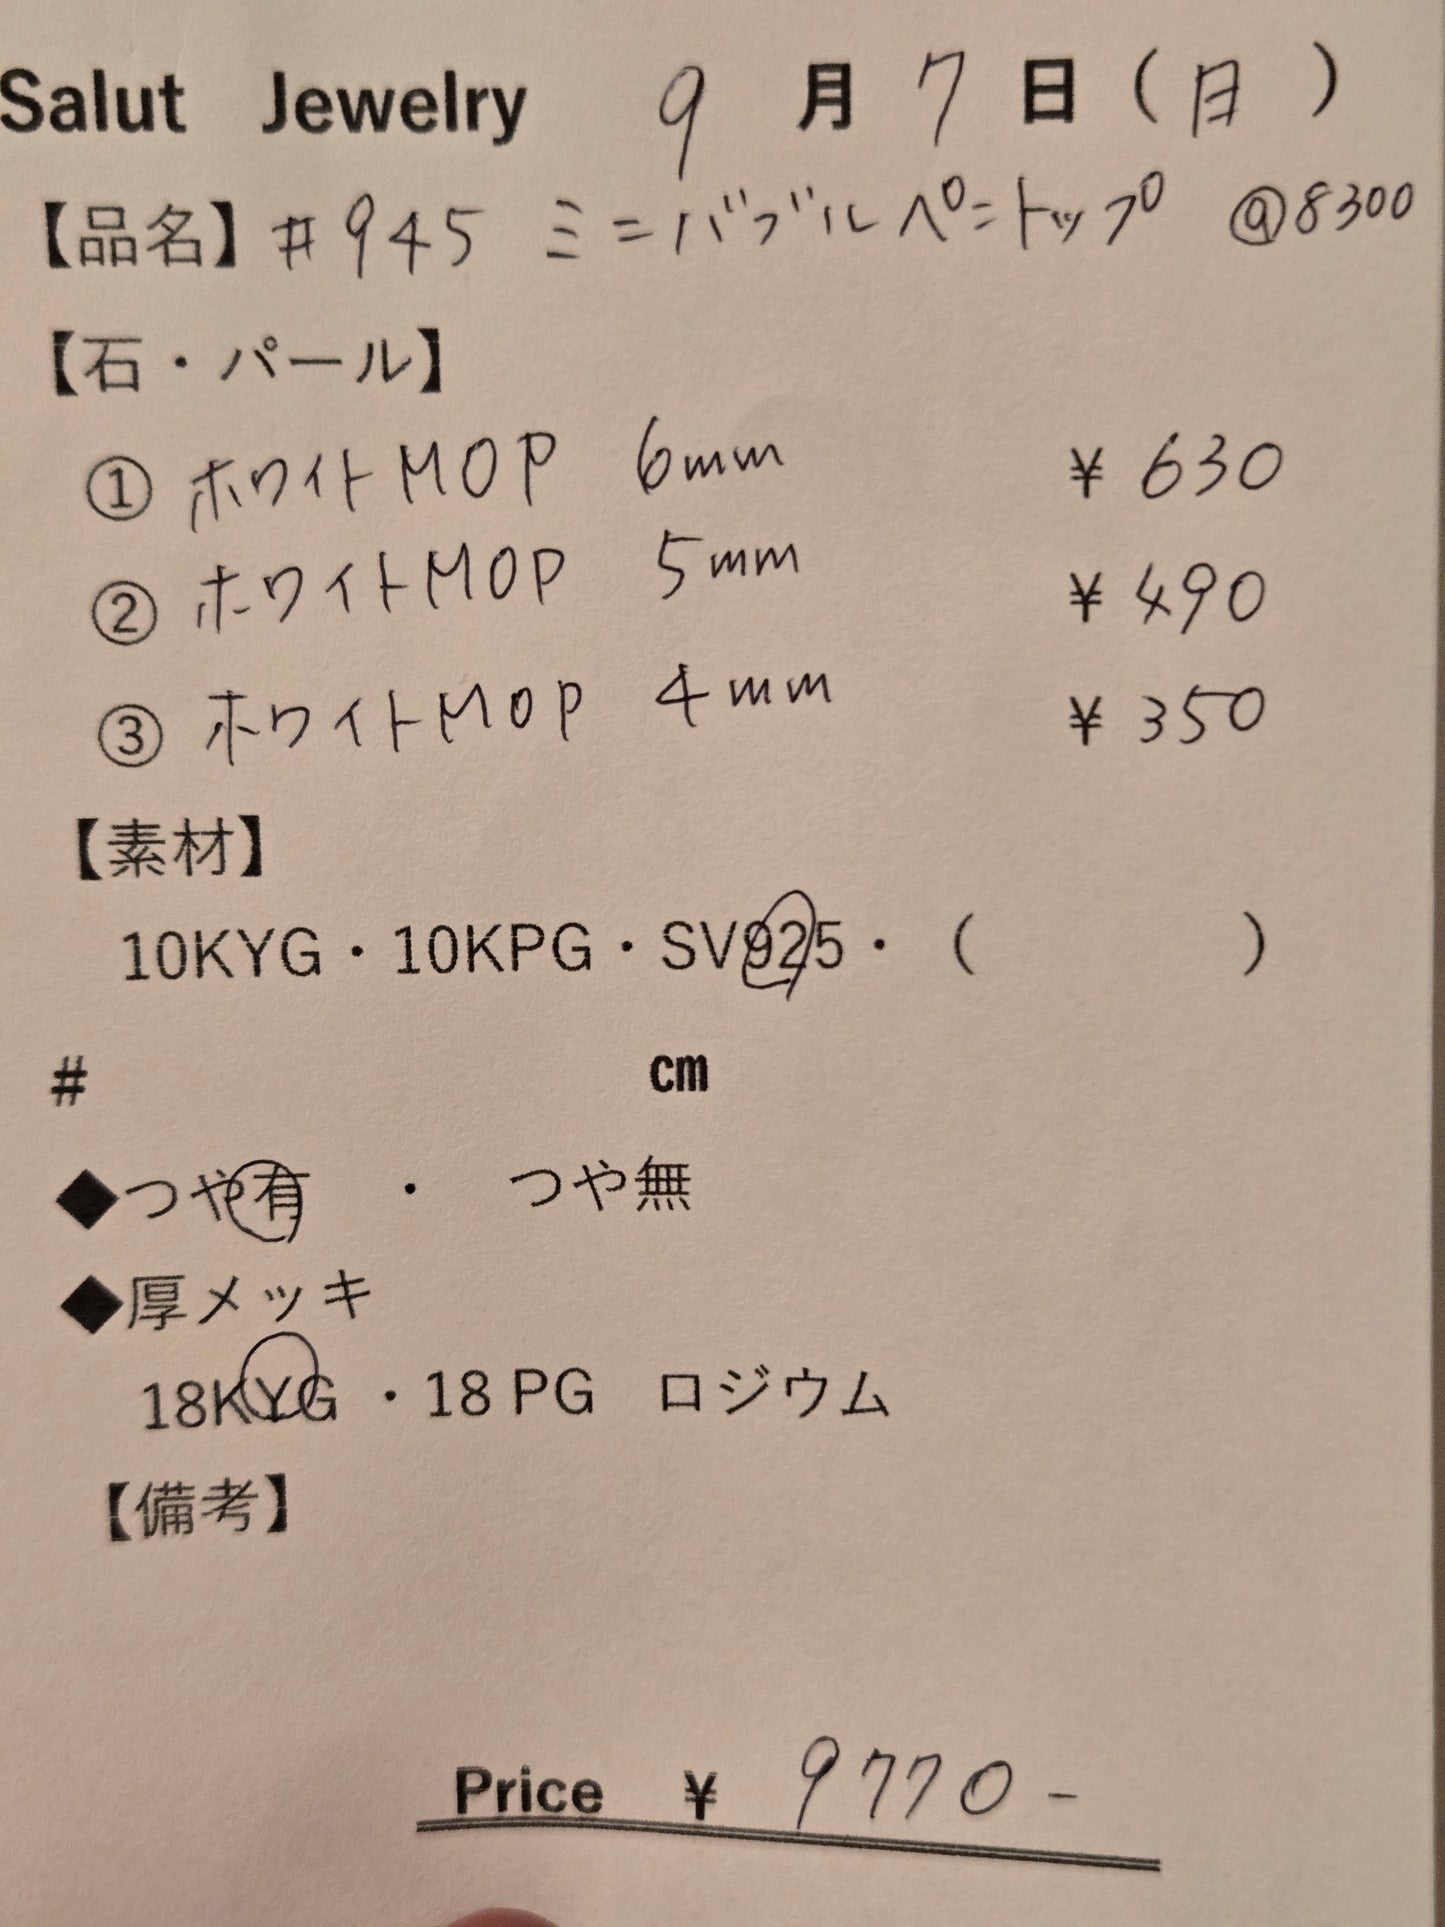 Salut Jewelry 9月7日(日)
【品名】#945 ミニバブルペニトップ @8300
【石・パール】
① ホワイトMOP 6mm ¥630
② ホワイトMOP 5mm ¥490
③ ホワイトMOP 4mm ¥350
【素材】
10KYG・10KPG・SV925・( )
# cm
◆つや有 ・ つや無
◆厚メッキ
18KYG ・18 PG ロジウム
【備考】
Price ¥ 9770-